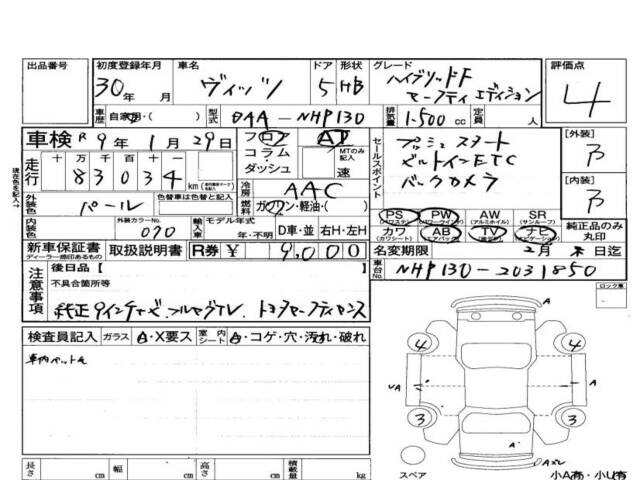 出品番号
初度登録年月
30年 月
車名
ヴィッツ
ドア
5
形状
HB
グレード
ハイブリッドF
セーフティエディション
評価点
4
車歴 自家用・( )
型式 DAA-NHP130
排気量 1.500 cc
定員 人
車検 R 9年 1月 29日
フロア AT
コラム・ MTのみ記入
ダッシュ 速
走行
十 万 千 百 十 一
8 3 0 3 4 km
冷房 AAC
燃料 ガソリン・軽油・( )
外装色 パール
色替車は色替と記入
内装色
外装カラーNo.
070
輸入車
モデル年式
年・不明
D車・並
右H・左H
セールスポイント
プッシュスタート
ビルトインETC
バックカメラ
[外装]
B
[内装]
B
PS PW AW SR
(パワーウィンドウ) (アルミホイル) (サンルーフ)
カワ AB TV ナビ
(カワシート) (エアバッグ) (ナビゲーション)
純正品のみ
丸印
新車保証書
ディーラー捺印あるもの
取扱説明書
R券 ¥ 9,000
名変期限 2月 末日迄
車台No. NHP130-2031850
注意事項
後日品[ ]
不具合箇所等
純正9インチナビ.フルセグTV. トヨタセーフティセンス
現在色を記入→
ロック車
検査員記入
ガラス A・X要ス
室内シート A・コゲ・穴・汚れ・破れ
車内ペット毛
4 4
UA A
3 3
A
スペア
長さ cm
幅 cm
高さ cm
積載量 kg
小A有・小U有